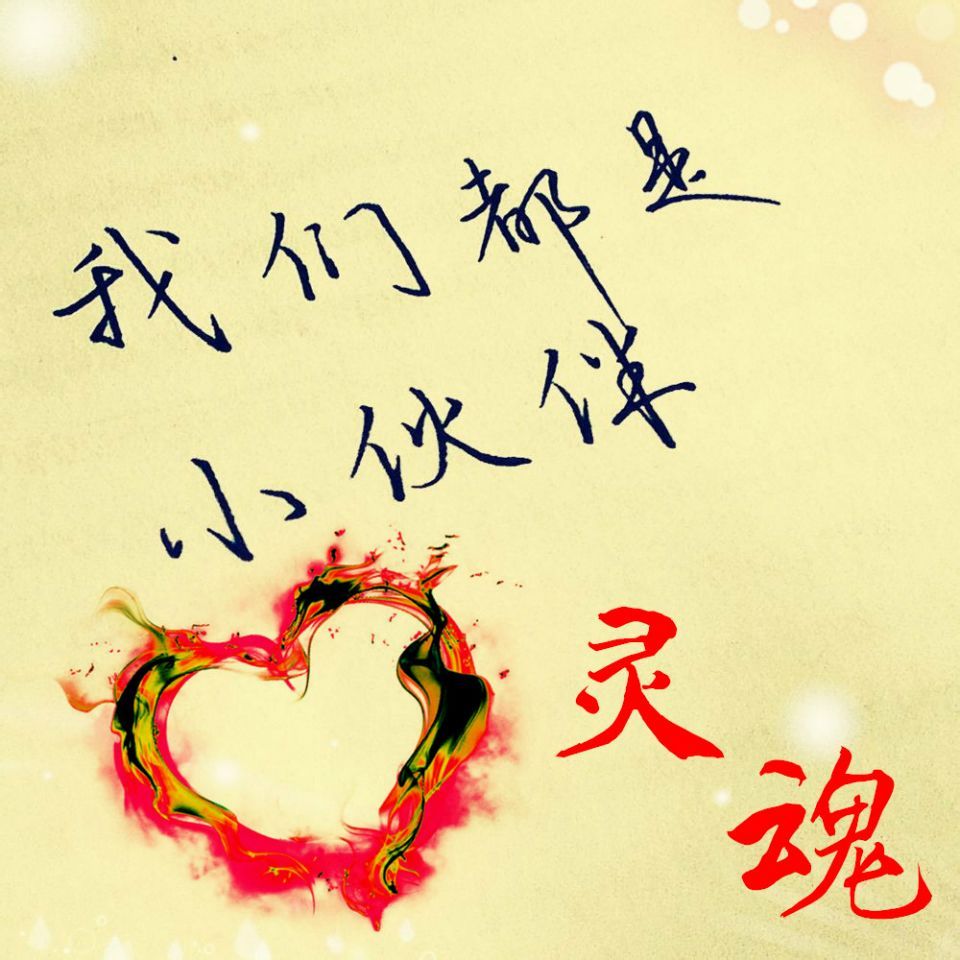 我们都是
小伙伴
灵魂